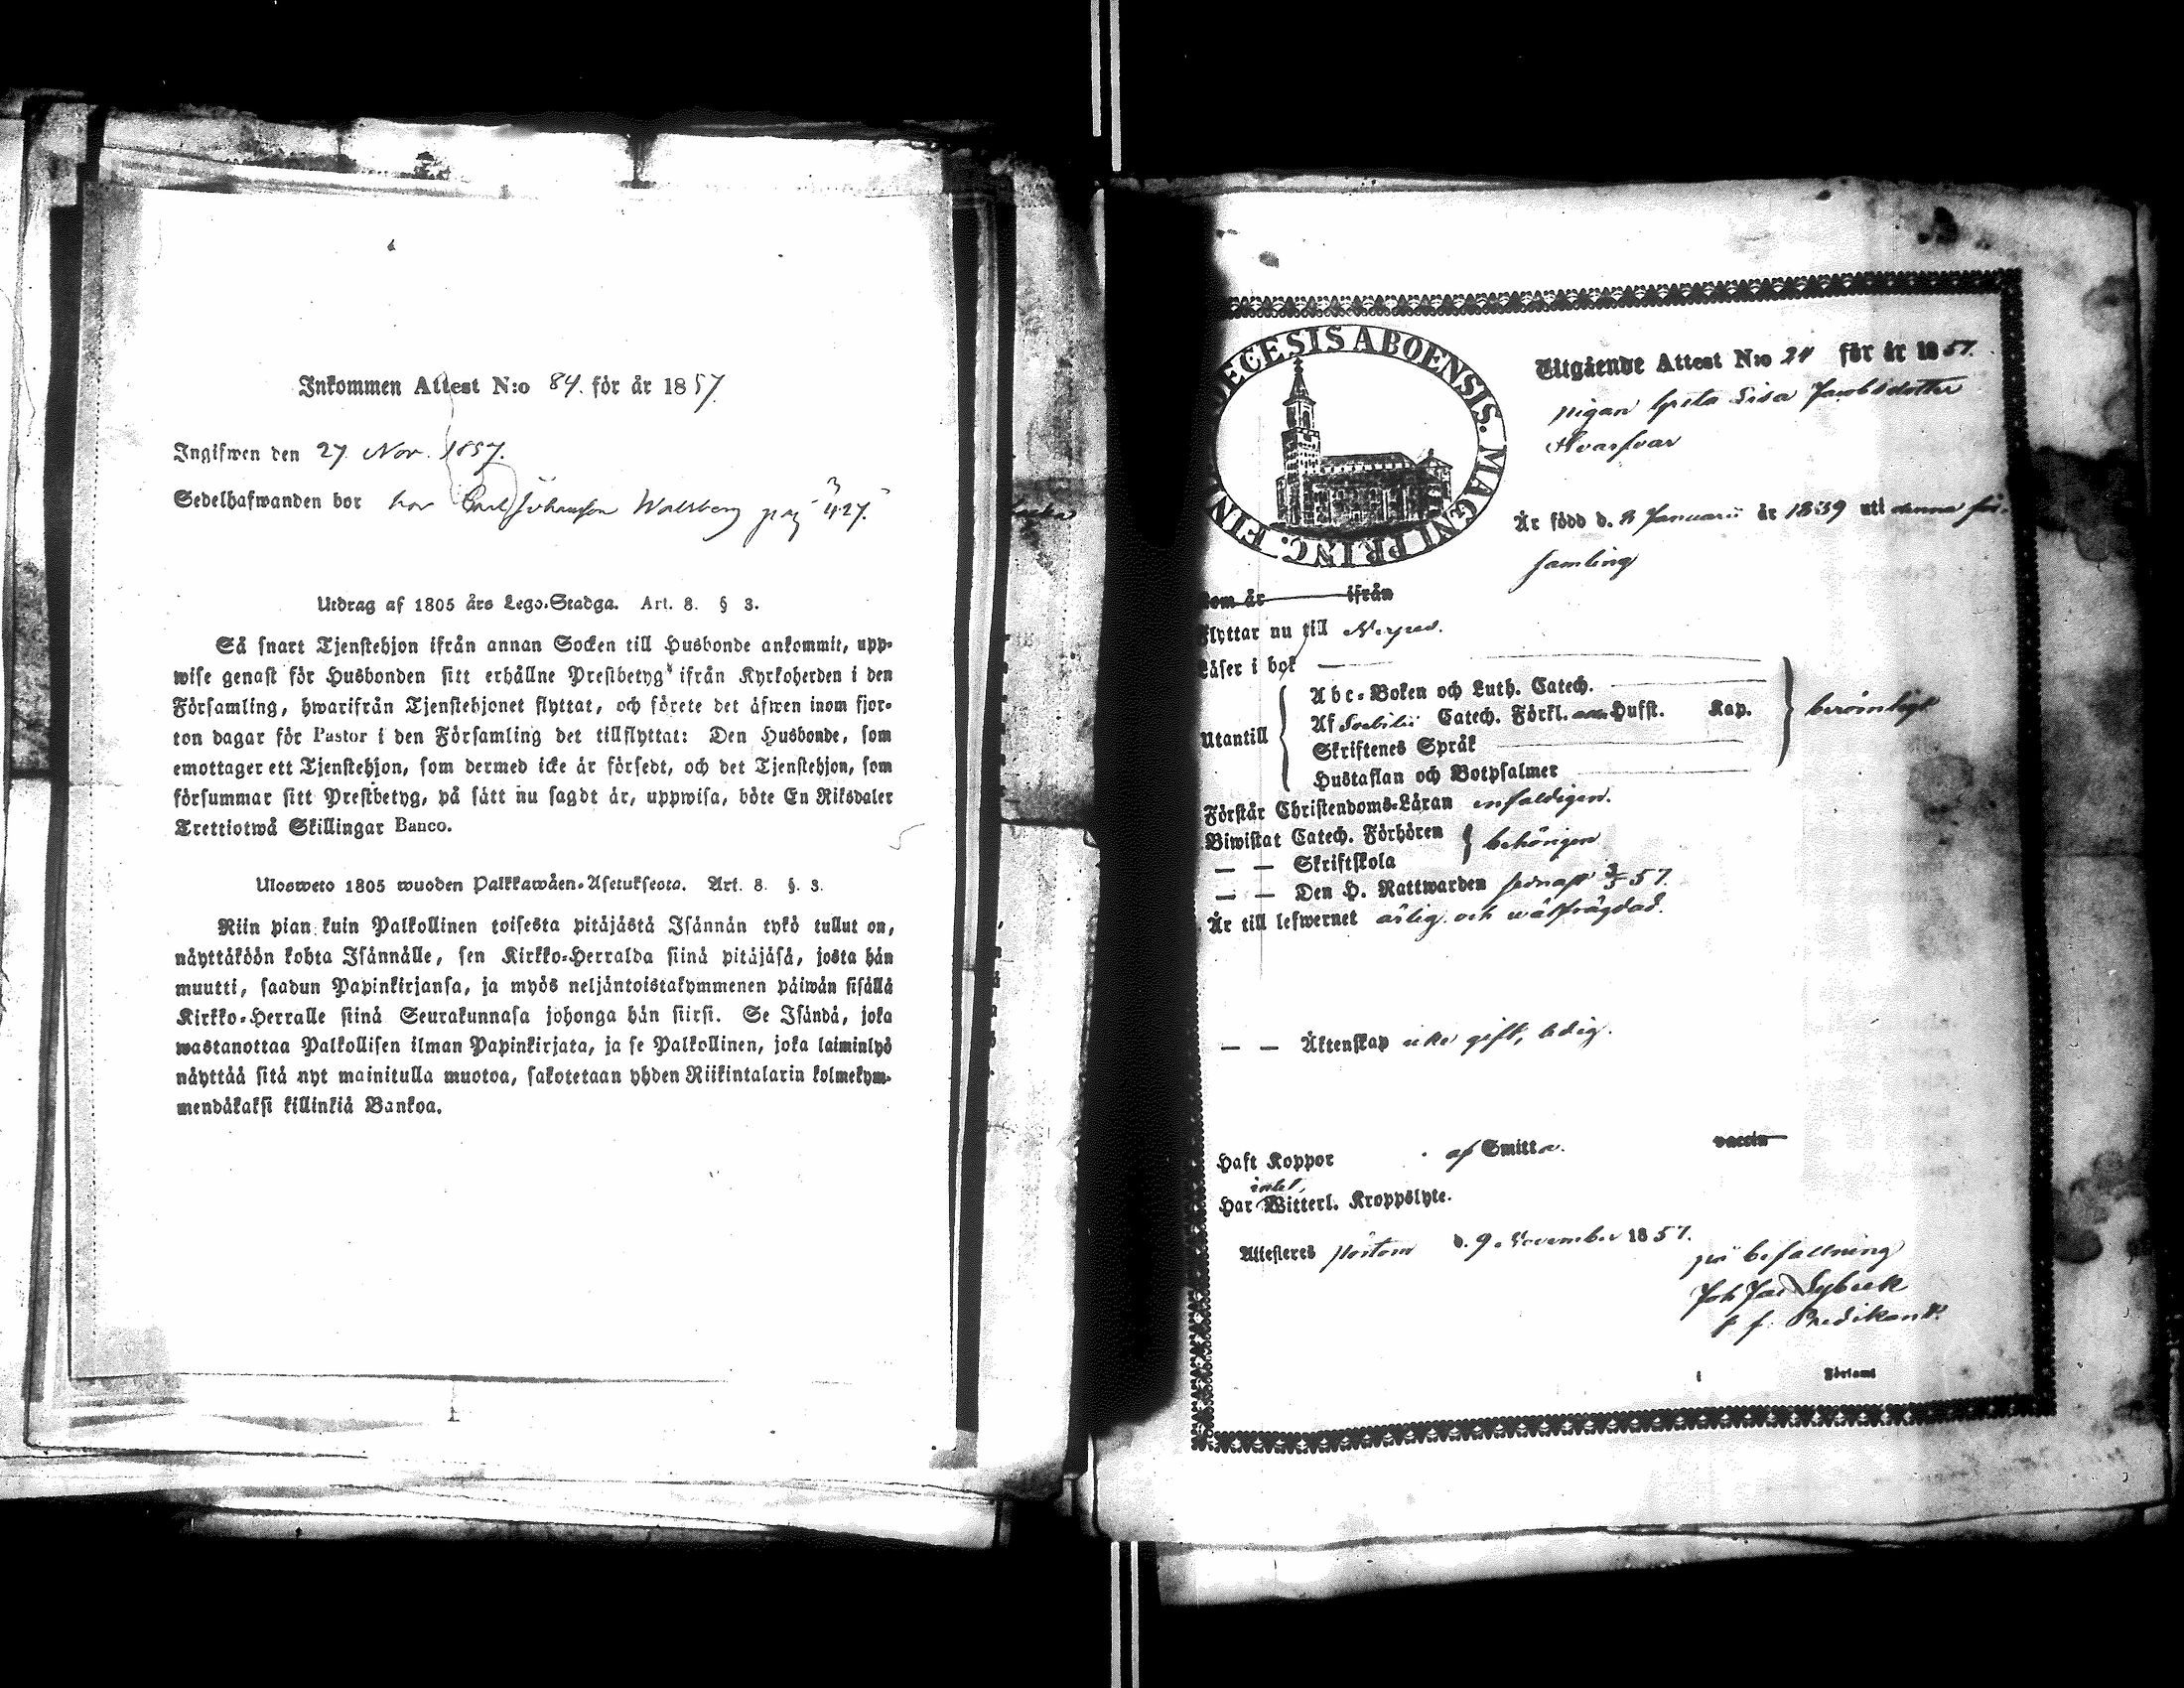 Inkommen Attest N:o 84. för år 1857.
Ingifwen den 27. Nov. 1857.
Sedelhafwanden bor hos Carl Johansson Walsberg pag 427.
Utdrag af 1805 års Lego-Stadga. Art. 8. § 3.
Så snart Tjenstehjon ifrån annan Socken till Husbonde ankommit, upp-
wise genast för Husbonden sitt erhållne Prestbetyg ifrån Kyrkoherden i den
Församling, hwarifrån Tjenstehjonet flyttat, och förete det äfwen inom fjor-
ton dagar för Pastor i den Församling det tillflyttat: Den Husbonde, som
emottager ett Tjenstehjon, som dermed icke är försedt, och det Tjenstehjon, som
försummar sitt Prestbetyg, på sätt nu sagdt är, uppwisa, böte En Riksdaler
Trettiotwå Skillingar Banco.
Ulosweto 1805 wuoden Palkkawäen-Asetuksesta. Art. 8. §. 3.
Niin pian kuin Palkollinen toisesta pitäjästä Isännän tykö tullut on,
näyttäköön kohta Isännälle, sen Kirkko-Herralda siinä pitäjäsä, josta hän
muutti, saadun Papinkirjansa, ja myös neljäntoistakymmenen päiwän sisällä
Kirkko-Herralle siinä Seurakunnasa johonga hän siirsi. Se Isändä, joka
wastanottaa Palkollisen ilman Papinkirjata, ja se Palkollinen, joka laiminlyö
näyttää sitä nyt mainitulla muotoa, sakotetaan yhden Riikintalarin kolmekym-
mendäkaksi killinkiä Bankoa.
DIOECESIS ABOENSIS. MAGNI PRINC. FIN
Utgående Attest N:o 24 för år 1857.
pigan Greta Lisa Jacobsdotter
Hvarfvar
Är född d. 8 Januarii år 1839 uti denna för-
samling
som är ifrån
Flyttar nu till
Läser i bok
Utantill
Abc-Boken och Luth. Catech.
Af Svebilii Catech. Förkl. Hufst. Kap.
berömligt
Skriftenes Språk
Hustaflan och Botpsalmer
Förstår Christendoms-Läran enfaldigen.
Biwistat Catech. Förhören
behörigen
— — Skriftskola
— — Den H. Nattwarden sednast 3/5 57.
Är till lefwernet ärlig och wälfrägdad.
— — Äktenskap icke gift, ledig.
Haft Koppor af Smitta. vaccin
intet
Har Witterl. Kroppslyte.
Attesteras Pörtom d. 9 November 1857.
på befallning
Joh Jac Sybeck
t f. Predikant.
i Församl